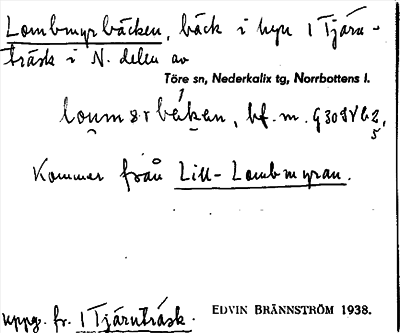 Lombmyrbäcken, bäck i byn 1 Tjäru-
träsk i N. delen av
Töre sn, Nederkalix tg, Norrbottens l.
bf. m.
Kommer från Lill-Lombmyran.
uppg. fr. 1 Tjärnträsk. EDVIN BRÄNNSTRÖM 1938.